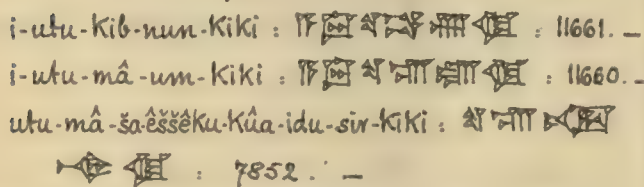 i-utu-kib-nun-kiki : 𒀀𒇉𒌓𒄒𒉣𒆠 : 11661. _
i-utu-mâ-um-kiki : 𒀀𒇉𒌓 𒆠 : 11660. _
utu-mâ-ša-êššêku-kûa-idu-sir-kiki : 𒌓
𒆠 : 7852. _